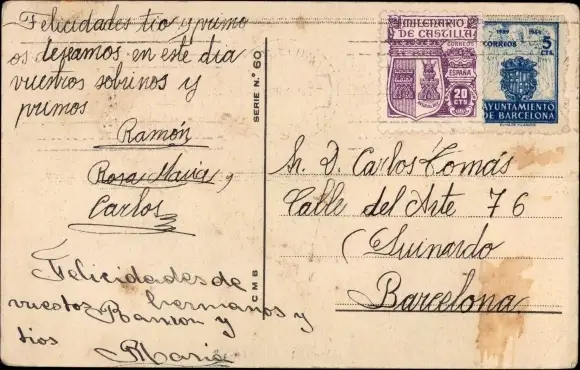 Felicidades tio y primo
os dejamos en este dia
vuestros sobrinos y
primos
Ramón
Rosa Maria y
Carlos
Felicidades de
vuestos hermanos y
Ramon y
tios
Maria
SERIE N.º 60
C M B
MILENARIO
DE CASTILLA
CORREOS
ESPAÑA
20
CTS
CORREOS
5
CTS
AYUNTAMIENTO
DE BARCELONA
Sr. D. Carlos Tomás
Calle del Arte 76
(Guinardo
Barcelona